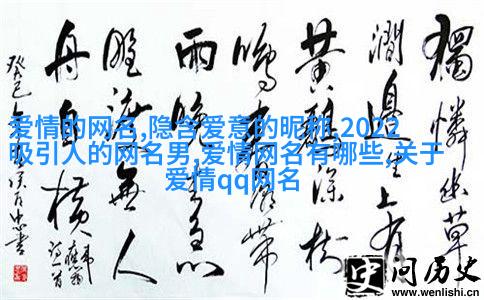 爱情的网名,隐含爱意的昵称,2022
吸引人的网名男,爱情网名有哪些,关于
爱情qq网名
獨憐幽草
澗邊生上有
黄鸝深樹
鳴春潮帶
雨晚來急
野渡無人
舟自橫
癸巳
史问历史
www.wenlishi.cn